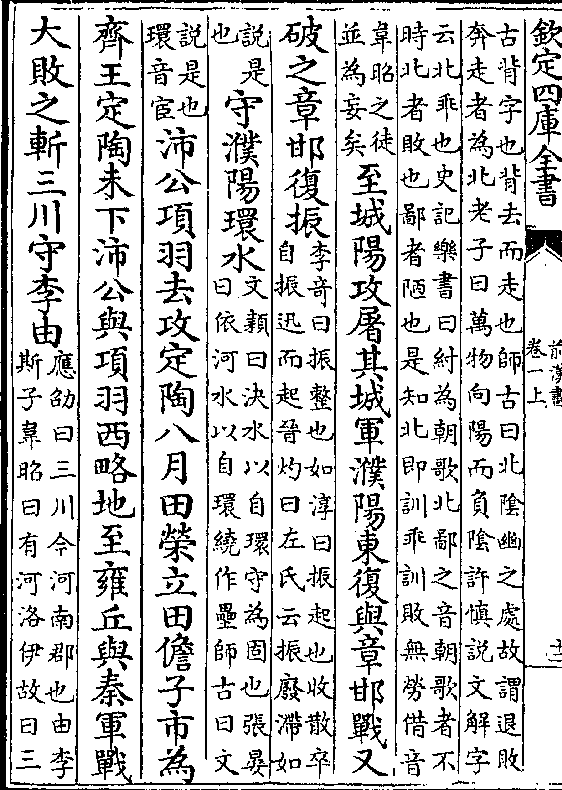 欽定四庫全書
前漢書
卷一上
十三
古背字也背去而走也師古曰北陰幽之處故謂退敗
奔走者為北老子曰萬物向陽而負陰許慎説文解字
云北乖也史記樂書曰紂為朝歌北鄙之音朝歌者不
時北者敗也鄙者陋也是知北即訓乖訓敗無勞借音
韋昭之徒
並為妄矣
至城陽攻屠其城軍濮陽東復與章邯戰又
破之章邯復振
李竒曰振整也如淳曰振起也收散卒
自振迅而起晉灼曰左氏云振廢滯如
説是
也
守濮陽環水
文穎曰決水以自環守為固也張晏
曰依河水以自環繞作壘師古曰文
説是也
環音宦
沛公項羽去攻定陶八月田榮立田儋子市為
齊王定陶未下沛公與項羽西略地至雍丘與秦軍戰
大敗之斬三川守李由
應劭曰三川今河南郡也由李
斯子韋昭曰有河洛伊故曰三